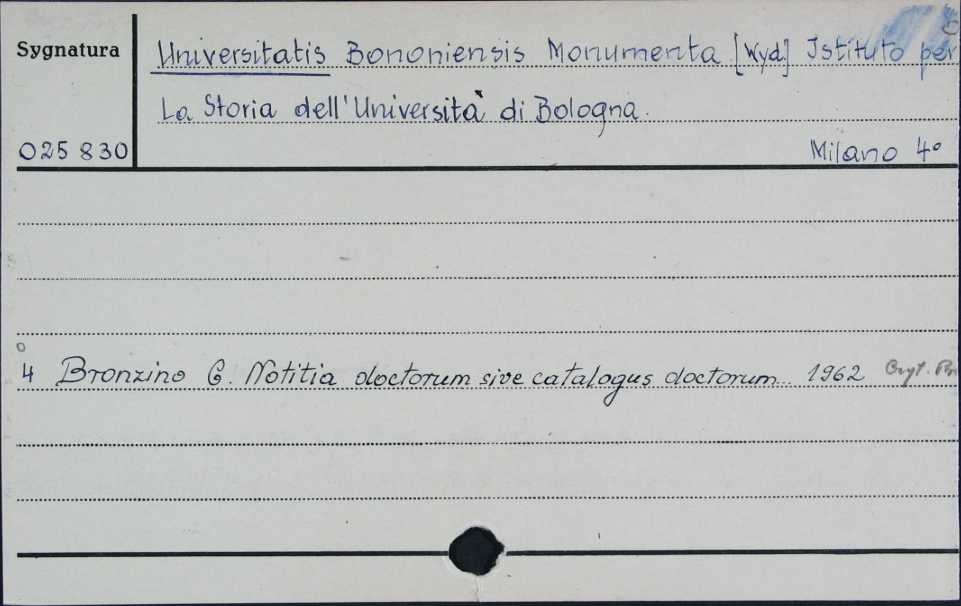 Sygnatura Universitatis Bononiensis Monumenta [Wyd] Istituto per
La Storia dell'Università di Bologna.
025 830 Milano 4°
4 Bronzino G. Notitia doctorum sive catalogus doctorum... 1962